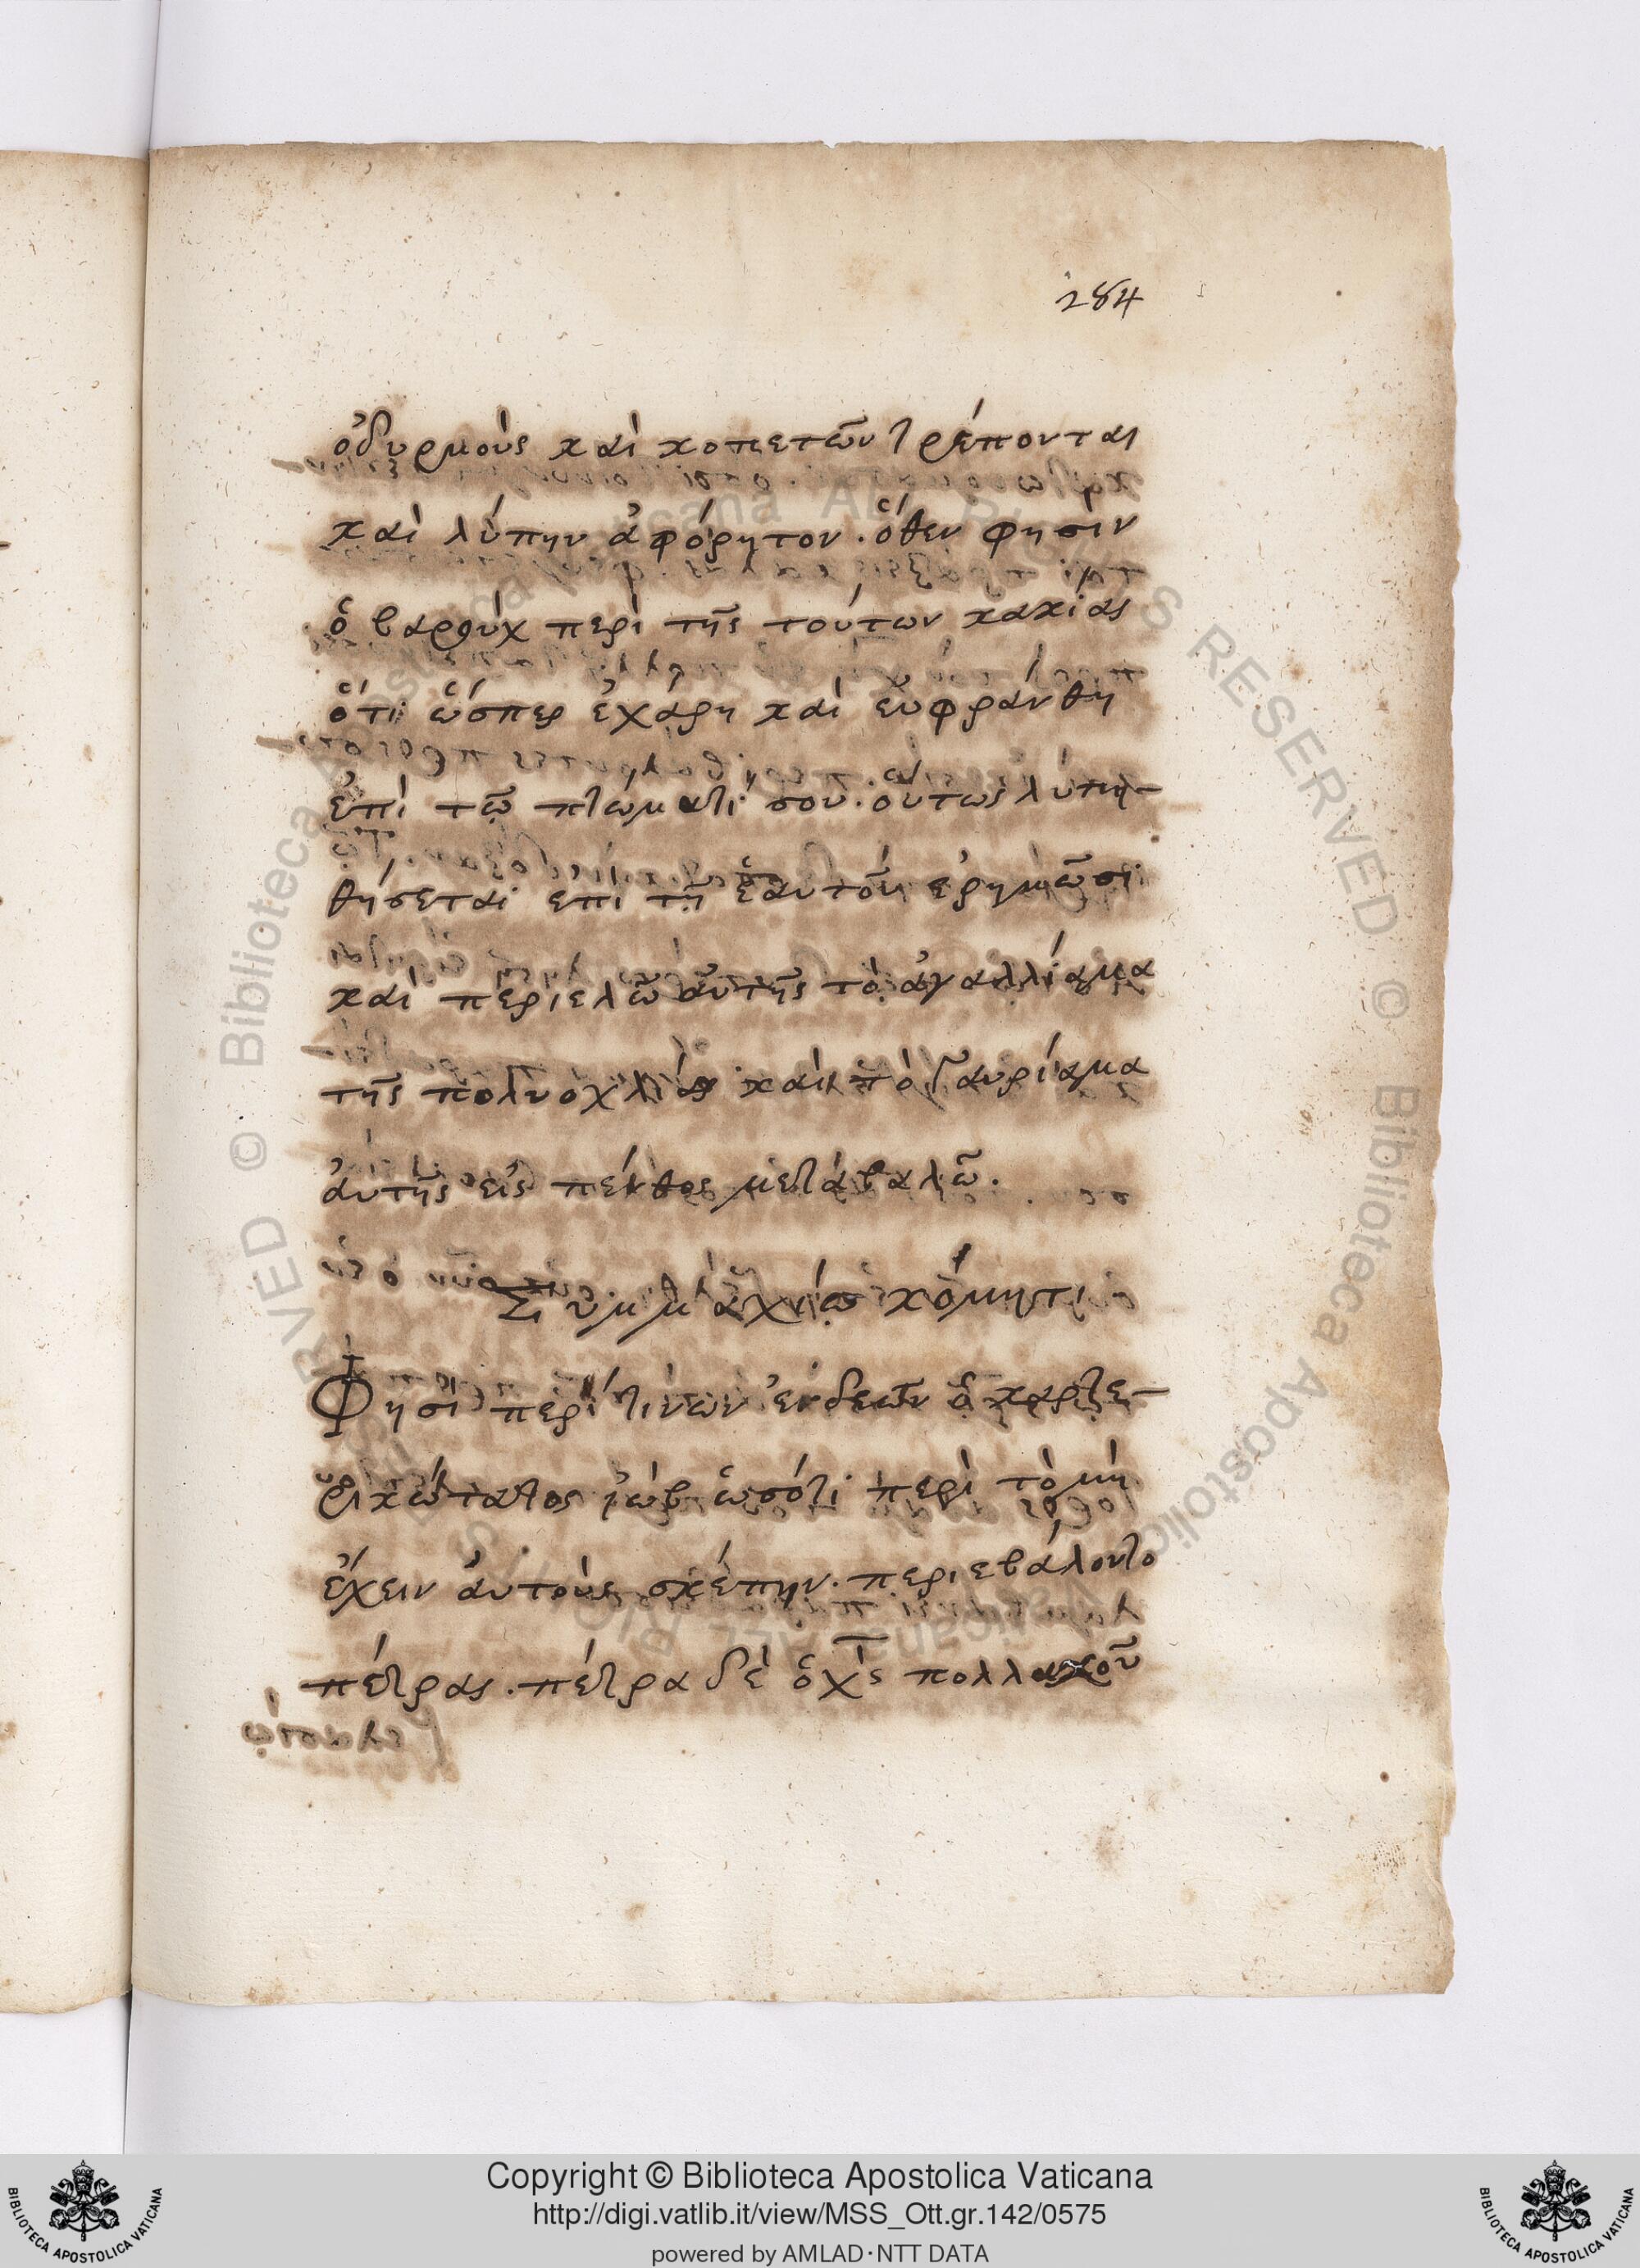 284
ὀδυρμοὺς καὶ κοπετῶν τρέπονται
καὶ λύπην ἀφόρητον. ὅθεν φησὶν
ὁ βαροὺχ περὶ τῆς τούτων κακίας
ὅτι ὥσπερ ἐχάρη καὶ εὐφράνθη
ἐπὶ τῷ πτώματί σου. οὕτως λύπη-
θήσεται ἐπὶ τῇ ἑαυτῶν ἐρημώσι
καὶ περιελῶ ἀυτῆς τὸ ἀγαλλίαμα
τῆς πολυοχλίας καὶ τὸ γαυρίαμα
ἀυτῆς εἰς πένθος μεταβαλῶ.
Συμμαχίῳ κόμητι
Φησὶ περί τινων ἐνδεῶν ὁ καρτε-
ρικώτατος ἰὼβ ὡσότι περὶ τὸ μὴ
ἔχειν ἀυτοὺς σκέπην. περιεβάλοντο
πέτρας. πέτρα δὲ ὁ χς πολλαχοῦ
Copyright © Biblioteca Apostolica Vaticana
http://digi.vatlib.it/view/MSS_Ott.gr.142/0575
powered by AMLAD·NTT DATA
BIBLIOTECA APOSTOLICA VATICANA
BIBLIOTECA APOSTOLICA VATICANA